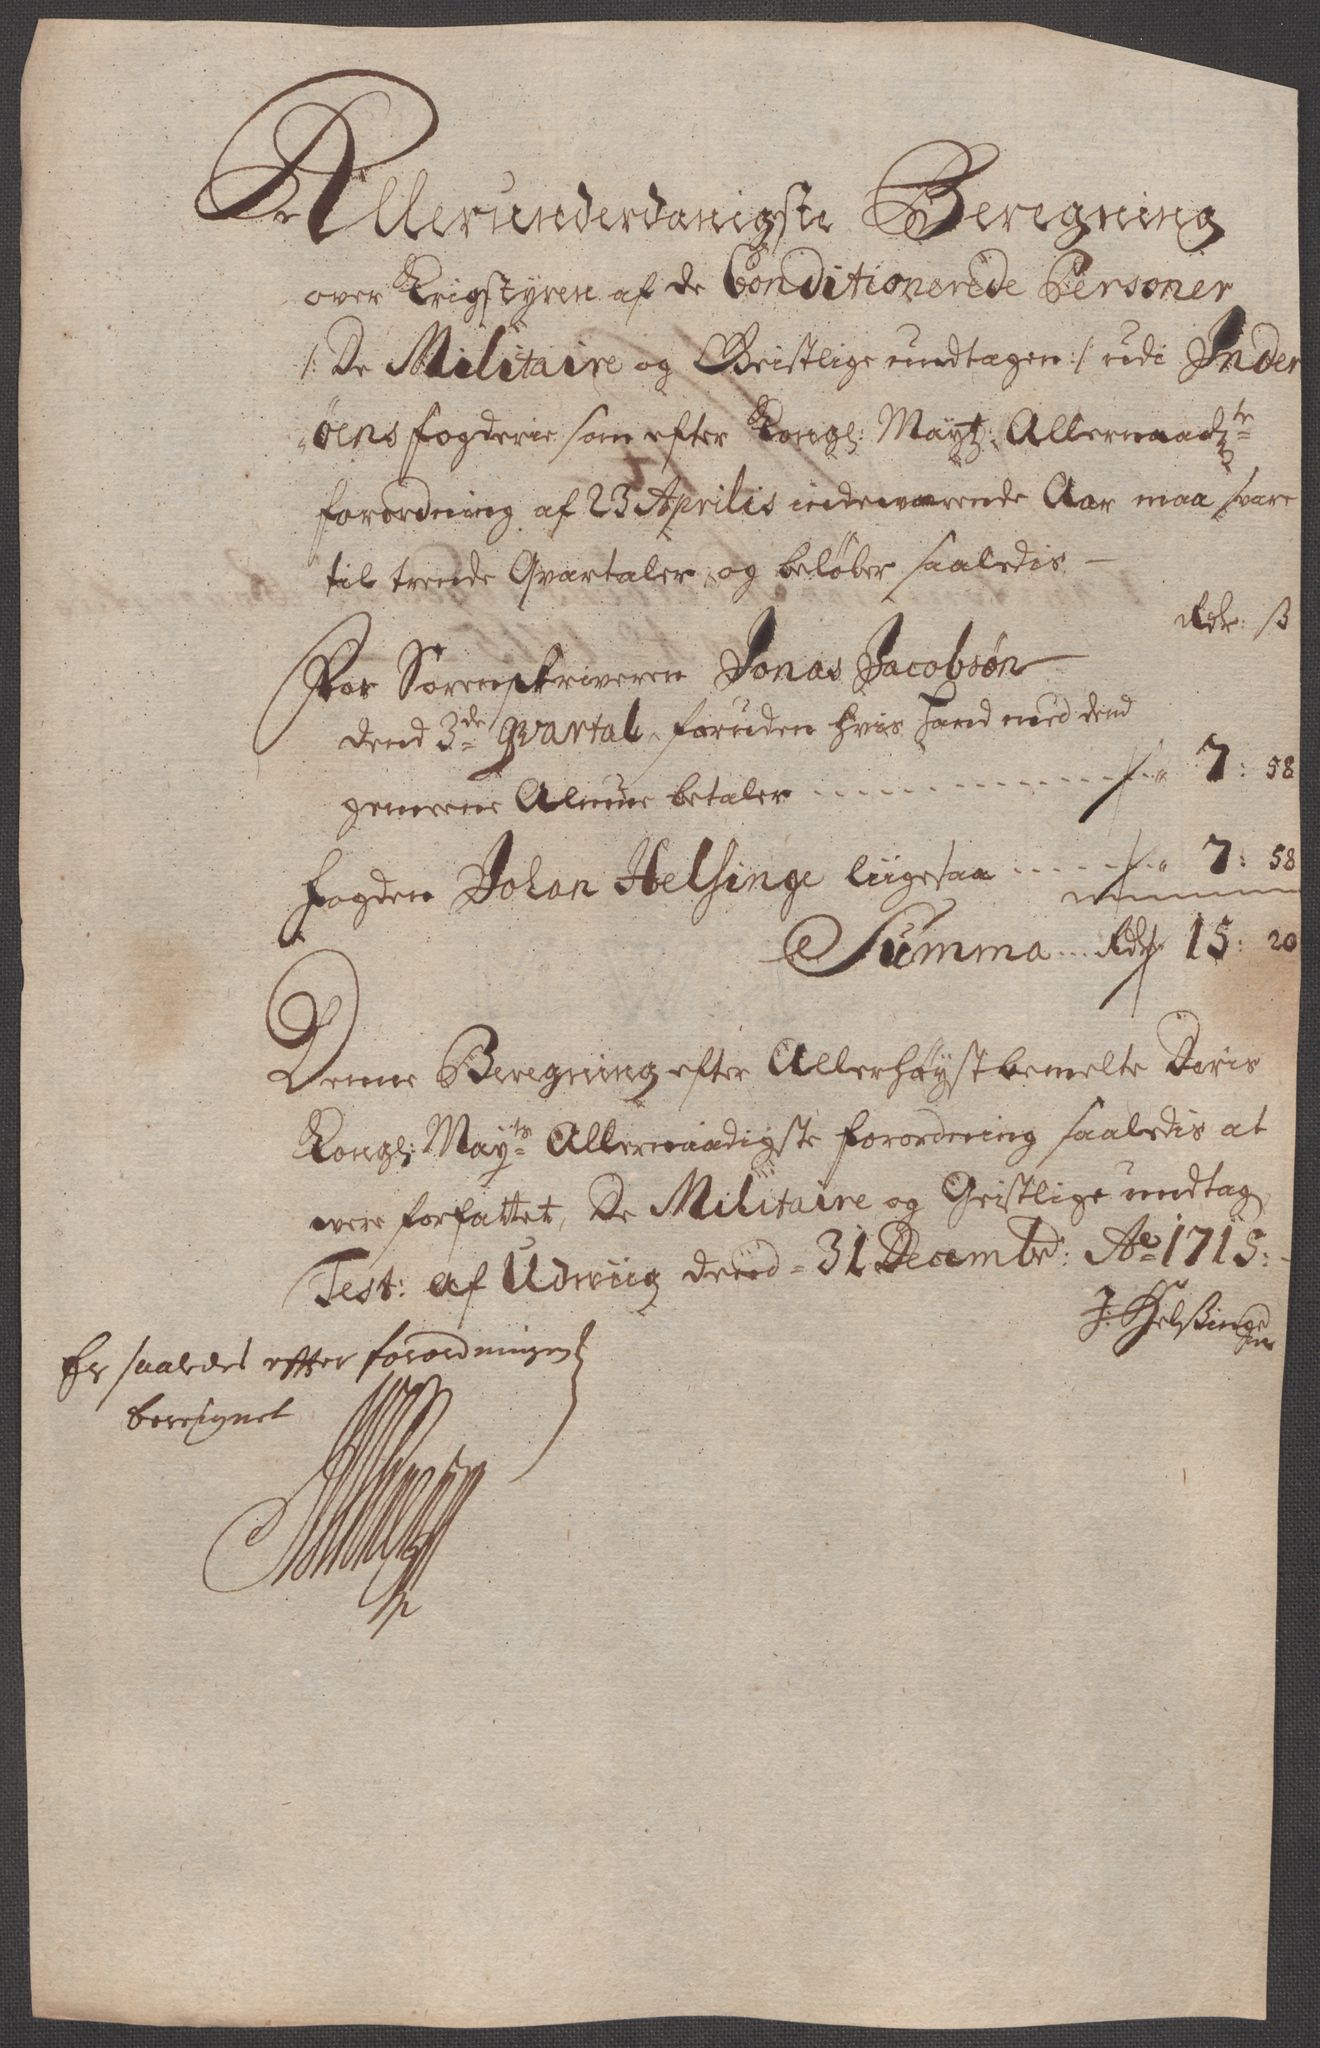 Allerunderdanigste Beregning
over Krigstyren af de Conditionerede Personer
/: De Militaire og Geistlige undtagen :/ udi Inder
øens fogderie som efter Kongl: Maytz: Allernaadste
forordning af 23 Aprilis indeværende Aar maa svare
til trende Qvartaler, og beløber saaledis –
Rdr: ß
For Sorenskriveren Jonas Jacobsøn
dend 3de Qvartal, foruden hvis hand med dend
gemeene Almue betaler 7: 58
fogden Johan Helsinge liigesaa 7: 58
Summa Rdr 15: 20
Denne Beregning efter Allerhøyst bemelte Deris
Kongl: Mayts Allernaadigste forordning saaledis at
vere forfattet, De Militaire og Geistlige undtag
Test: af Udviig dend 31 Decembr: Ao 1715:
J: Helssinge
Er saaledes efter forordningen
beregnet